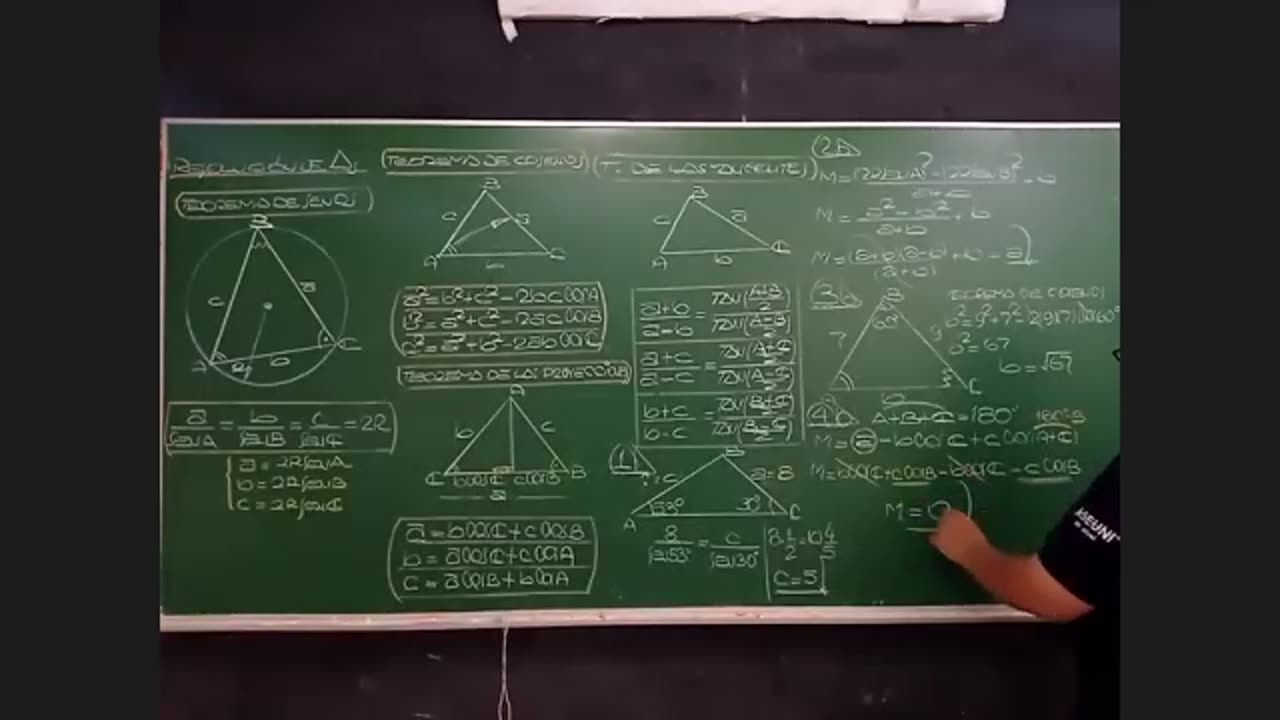 RESOLUCIÓN DE Δs
TEOREMA DE SENOS
B
c
a
A
b
C
a/SenA = b/SenB = c/SenC = 2R
a = 2RSenA
b = 2RSenB
c = 2RSenC
TEOREMA DE COSENOS
B
c
a
A
b
C
a² = b² + c² - 2bc CosA
b² = a² + c² - 2ac CosB
c² = a² + b² - 2ab CosC
TEOREMA DE LAS PROYECCIONES
A
b
c
C
bCosC
cCosB
B
a
a = bCosC + cCosB
b = aCosC + cCosA
c = aCosB + bCosA
T. DE LAS TANGENTES
B
c
a
A
b
C
a+b/a-b = TAN(A+B/2)/TAN(A-B/2)
a+c/a-c = TAN(A+C/2)/TAN(A-C/2)
b+c/b-c = TAN(B+C/2)/TAN(B-C/2)
1
B
a = 8
A
53°
C
8/Sen53° = c/Sen30°
8 1/2 = c 4/5
c = 5
2A
M = a² - b²/a+b + b
M = (a+b)(a-b)/(a+b) + b = a
3b
B
60°
7
9
b
C
TEOREMA DE COSENOS
b² = 9² + 7² - 2(9)(7)Cos60°
b² = 67
b = √67
A+B+C = 180°
180°-B
M = a - bCosC + cCos(A+C)
M = bCosC + cCosB - bCosC - cCosB
M = 0
ASEUNI